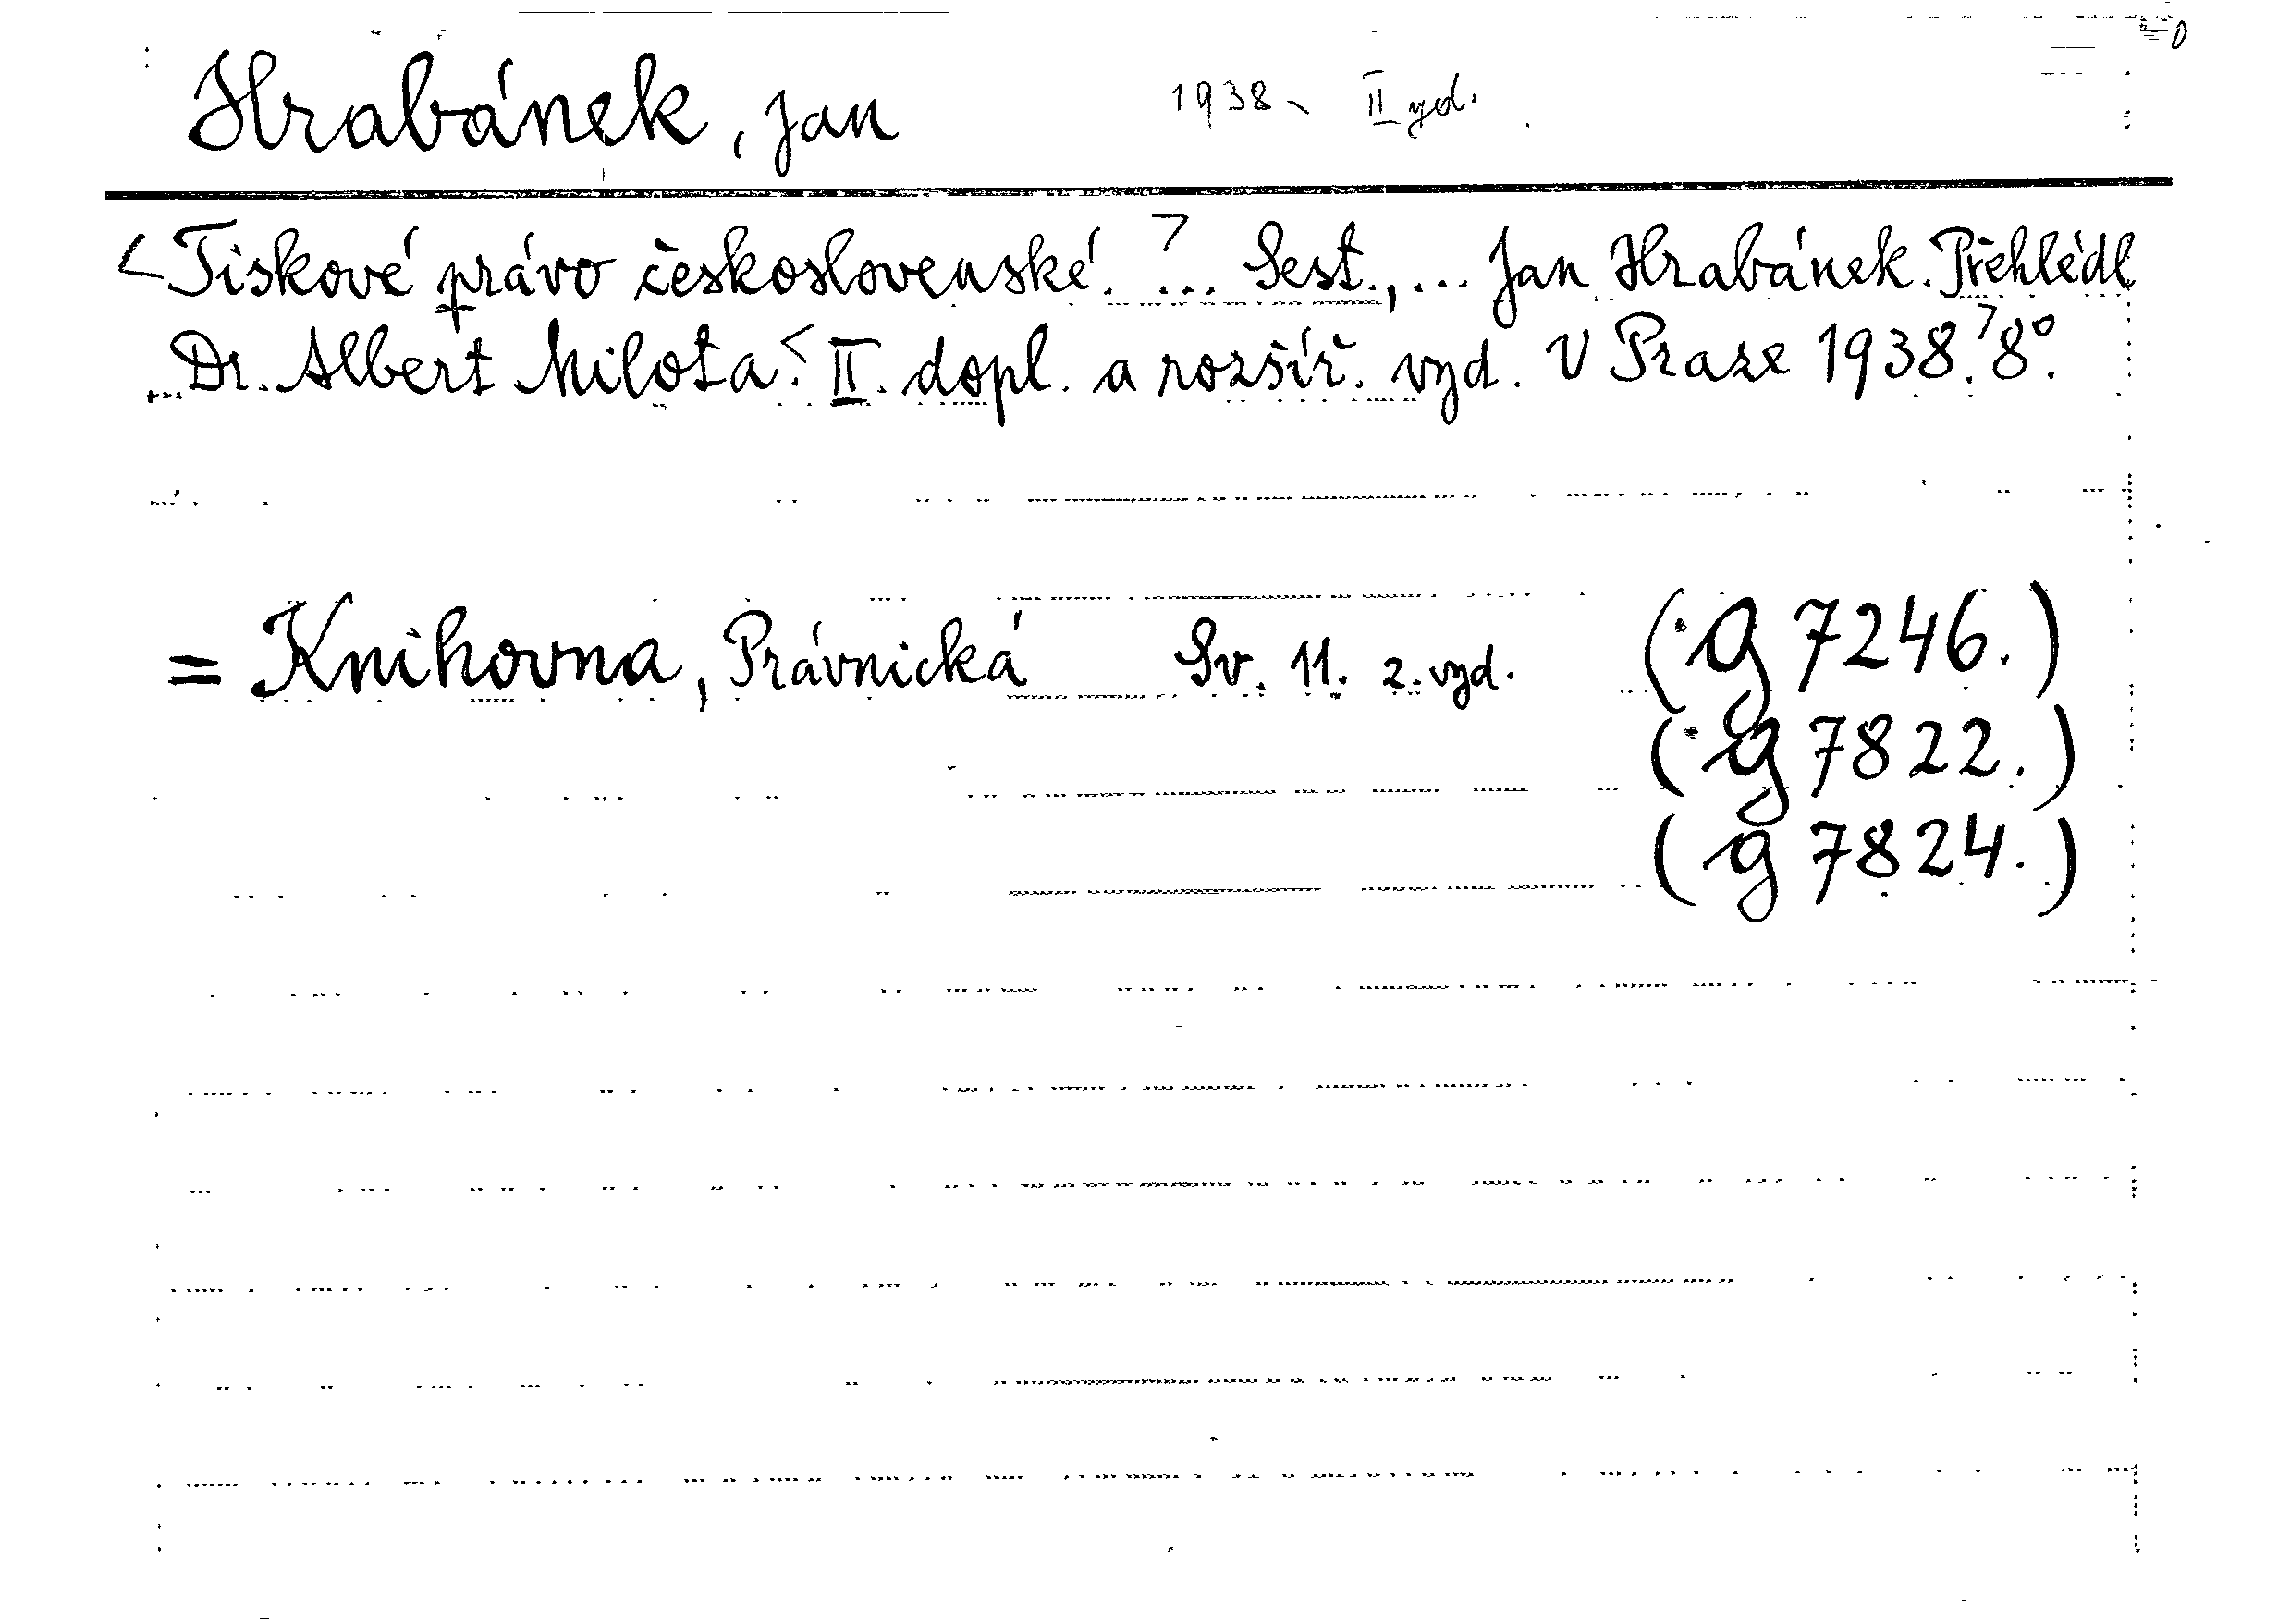 Hrabánek, Jan 1938 II vyd.
<Tiskové právo československé.> ... Sest., ... Jan Hrabánek. Přehlédl
Dr. Albert Milota. <II. dopl. a rozšíř. vyd. V Praze 1938.> 8°.
= Knihovna, Právnická Sv. 11. 2. vyd. (g 7246.)
(g 7822.)
(g 7824.)